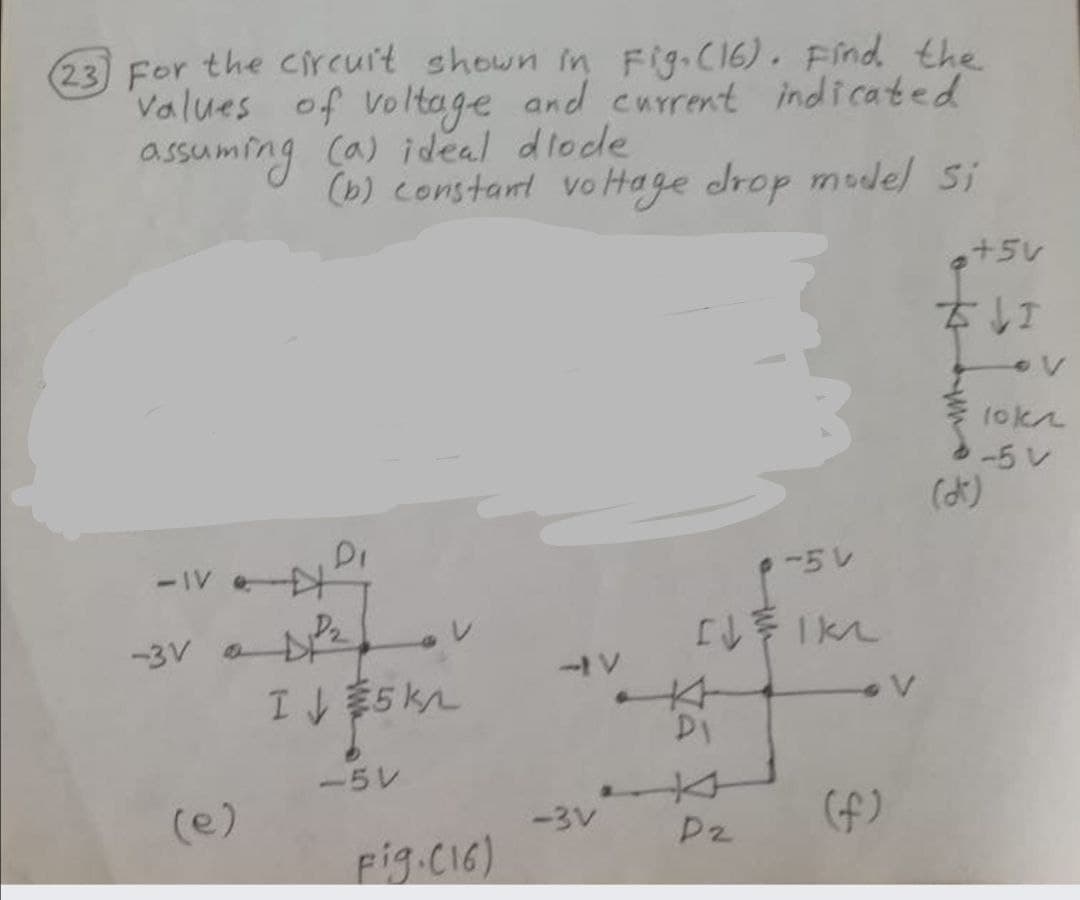 23 For the circuit shown in Fig.(16). Find the
values of voltage and current indicated
assuming (a) ideal diode
(b) constant voltage drop model Si
+5V
↓I
V
10kΩ
-5V
(d)
-1V
D1
-3V
D2
V
I↓ 5kΩ
-5V
(e)
Fig.(16)
-5V
I↓ 1kΩ
-1V
V
D1
-3V
D2
(f)